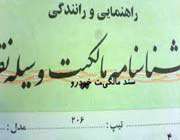 راهنمایی و رانندگی
شناسنامه مالکیت وسیله نق
سند مالکیت خودرو
تیپ: ۲۰۶ مدل: